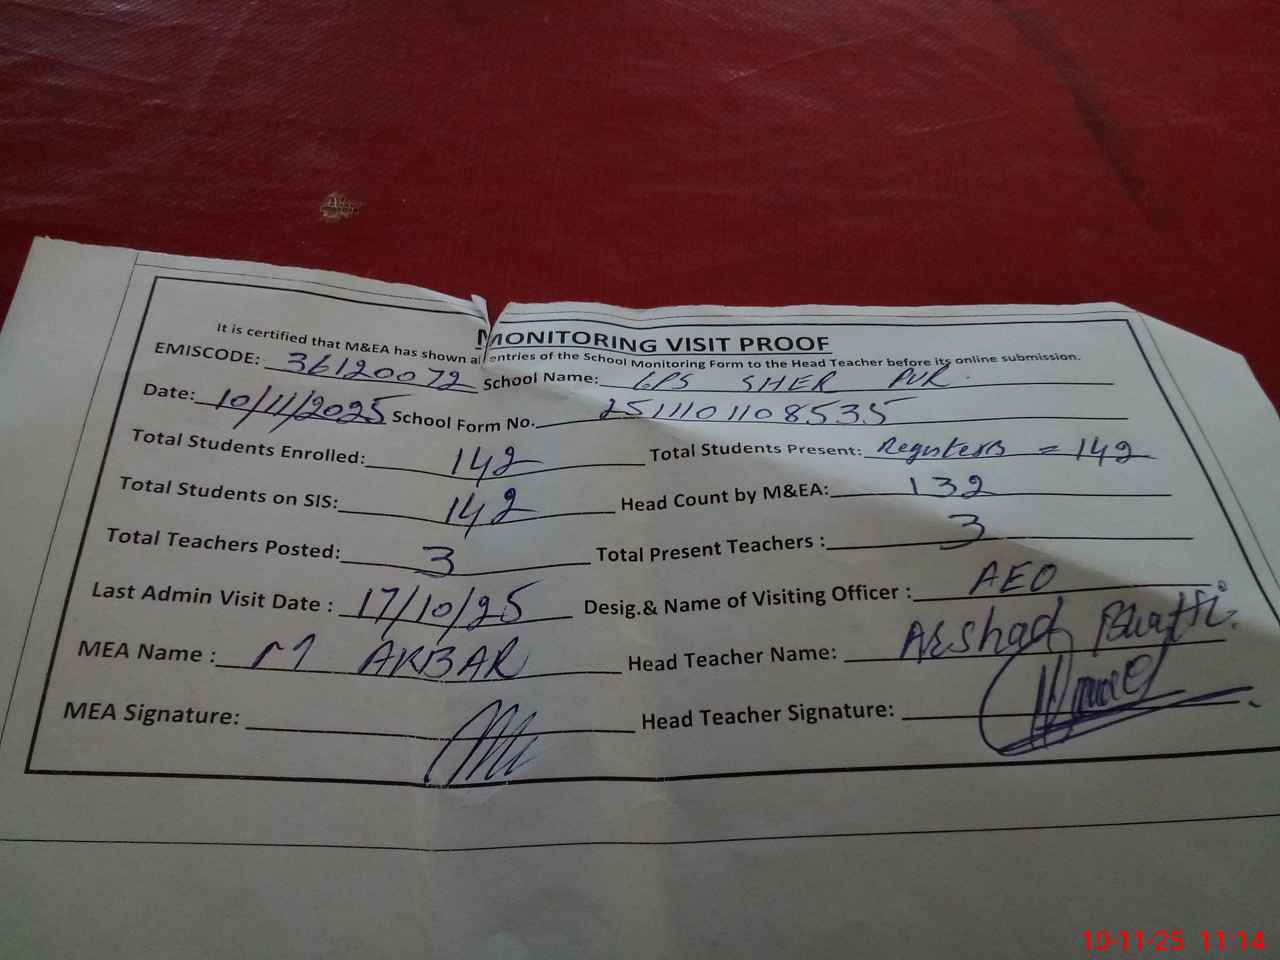 MONITORING VISIT PROOF
It is certified that M&EA has shown all entries of the School Monitoring Form to the Head Teacher before its online submission.
EMISCODE: 36120072 School Name: GPS SHER PUR.
Date: 10/11/2025 School Form No. 2511101108535
Total Students Enrolled: 142 Total Students Present: Registers = 142
Total Students on SIS: 142 Head Count by M&EA: 132
Total Teachers Posted: 3 Total Present Teachers : 3
Last Admin Visit Date : 17/10/25 Desig.& Name of Visiting Officer : AEO
MEA Name : M AKBAR Head Teacher Name: Arshad Bhatti
MEA Signature: Head Teacher Signature:
10-11-25 11:14